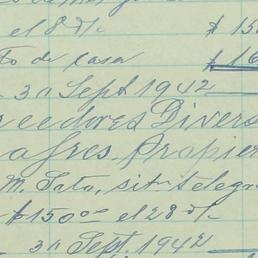 el 8 d/. $ 15
to de casa $ 16
3a Sept 1942
eedores Divers
afres. Propie
M. Soto, sit. telegr
$150 00 el 28 d/.
3a Sept. 1942